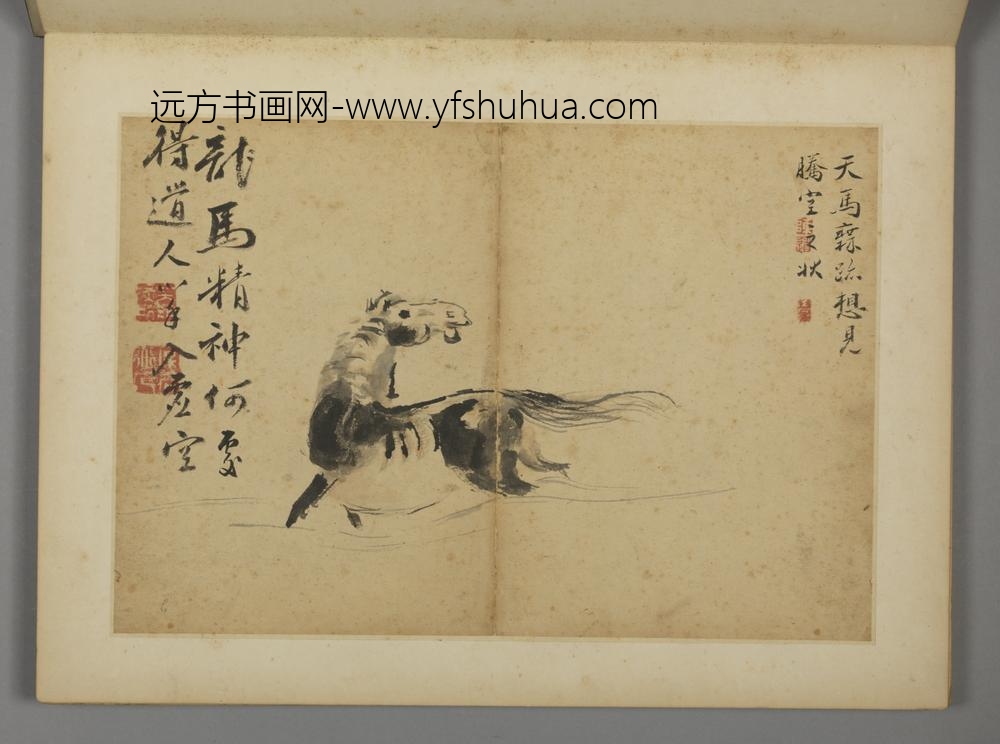 远方书画网-www.yfshuhua.com
天馬 想見
騰空之狀
龍馬精神何處
得道人 入虛空